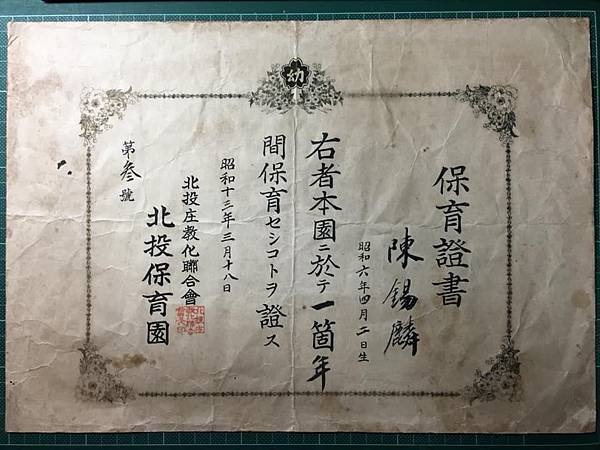 幼
保育證書
陳錫麟
昭和六年四月二日生
右者本園ニ於テ一箇年
間保育セシコトヲ證ス
昭和十三年三月十八日
北投庄教化聯合會
北投保育園
第叁號